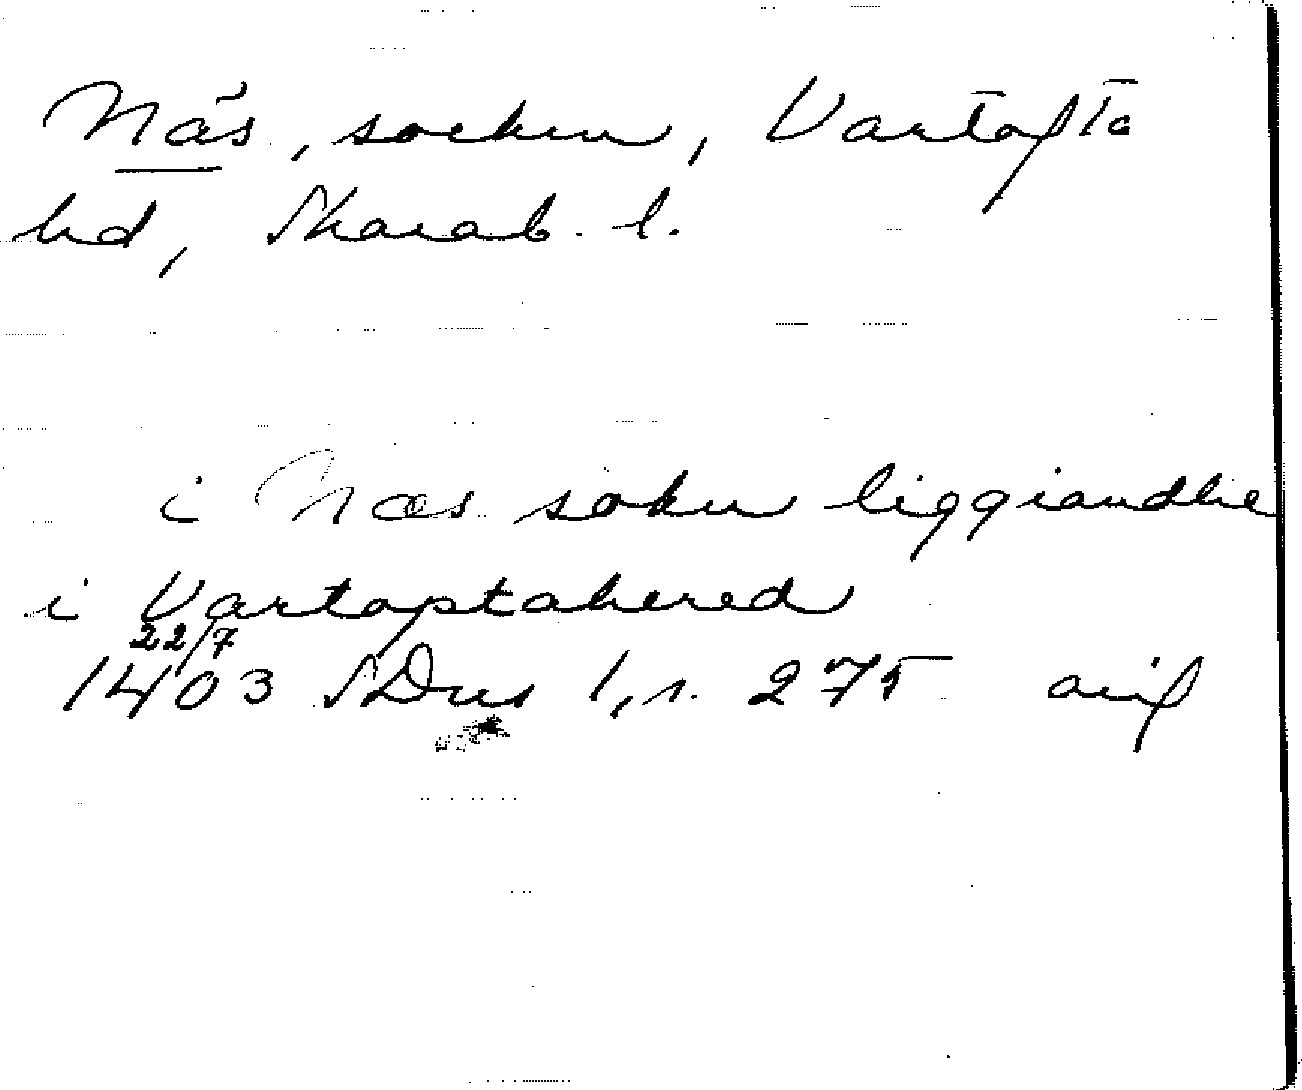 Näs, socken, Vartofta
hd, Skarab. l.
i Næs sokn liggiandhe
i Vartoptahered
22/7
1403 SDns 1, s. 275 avs